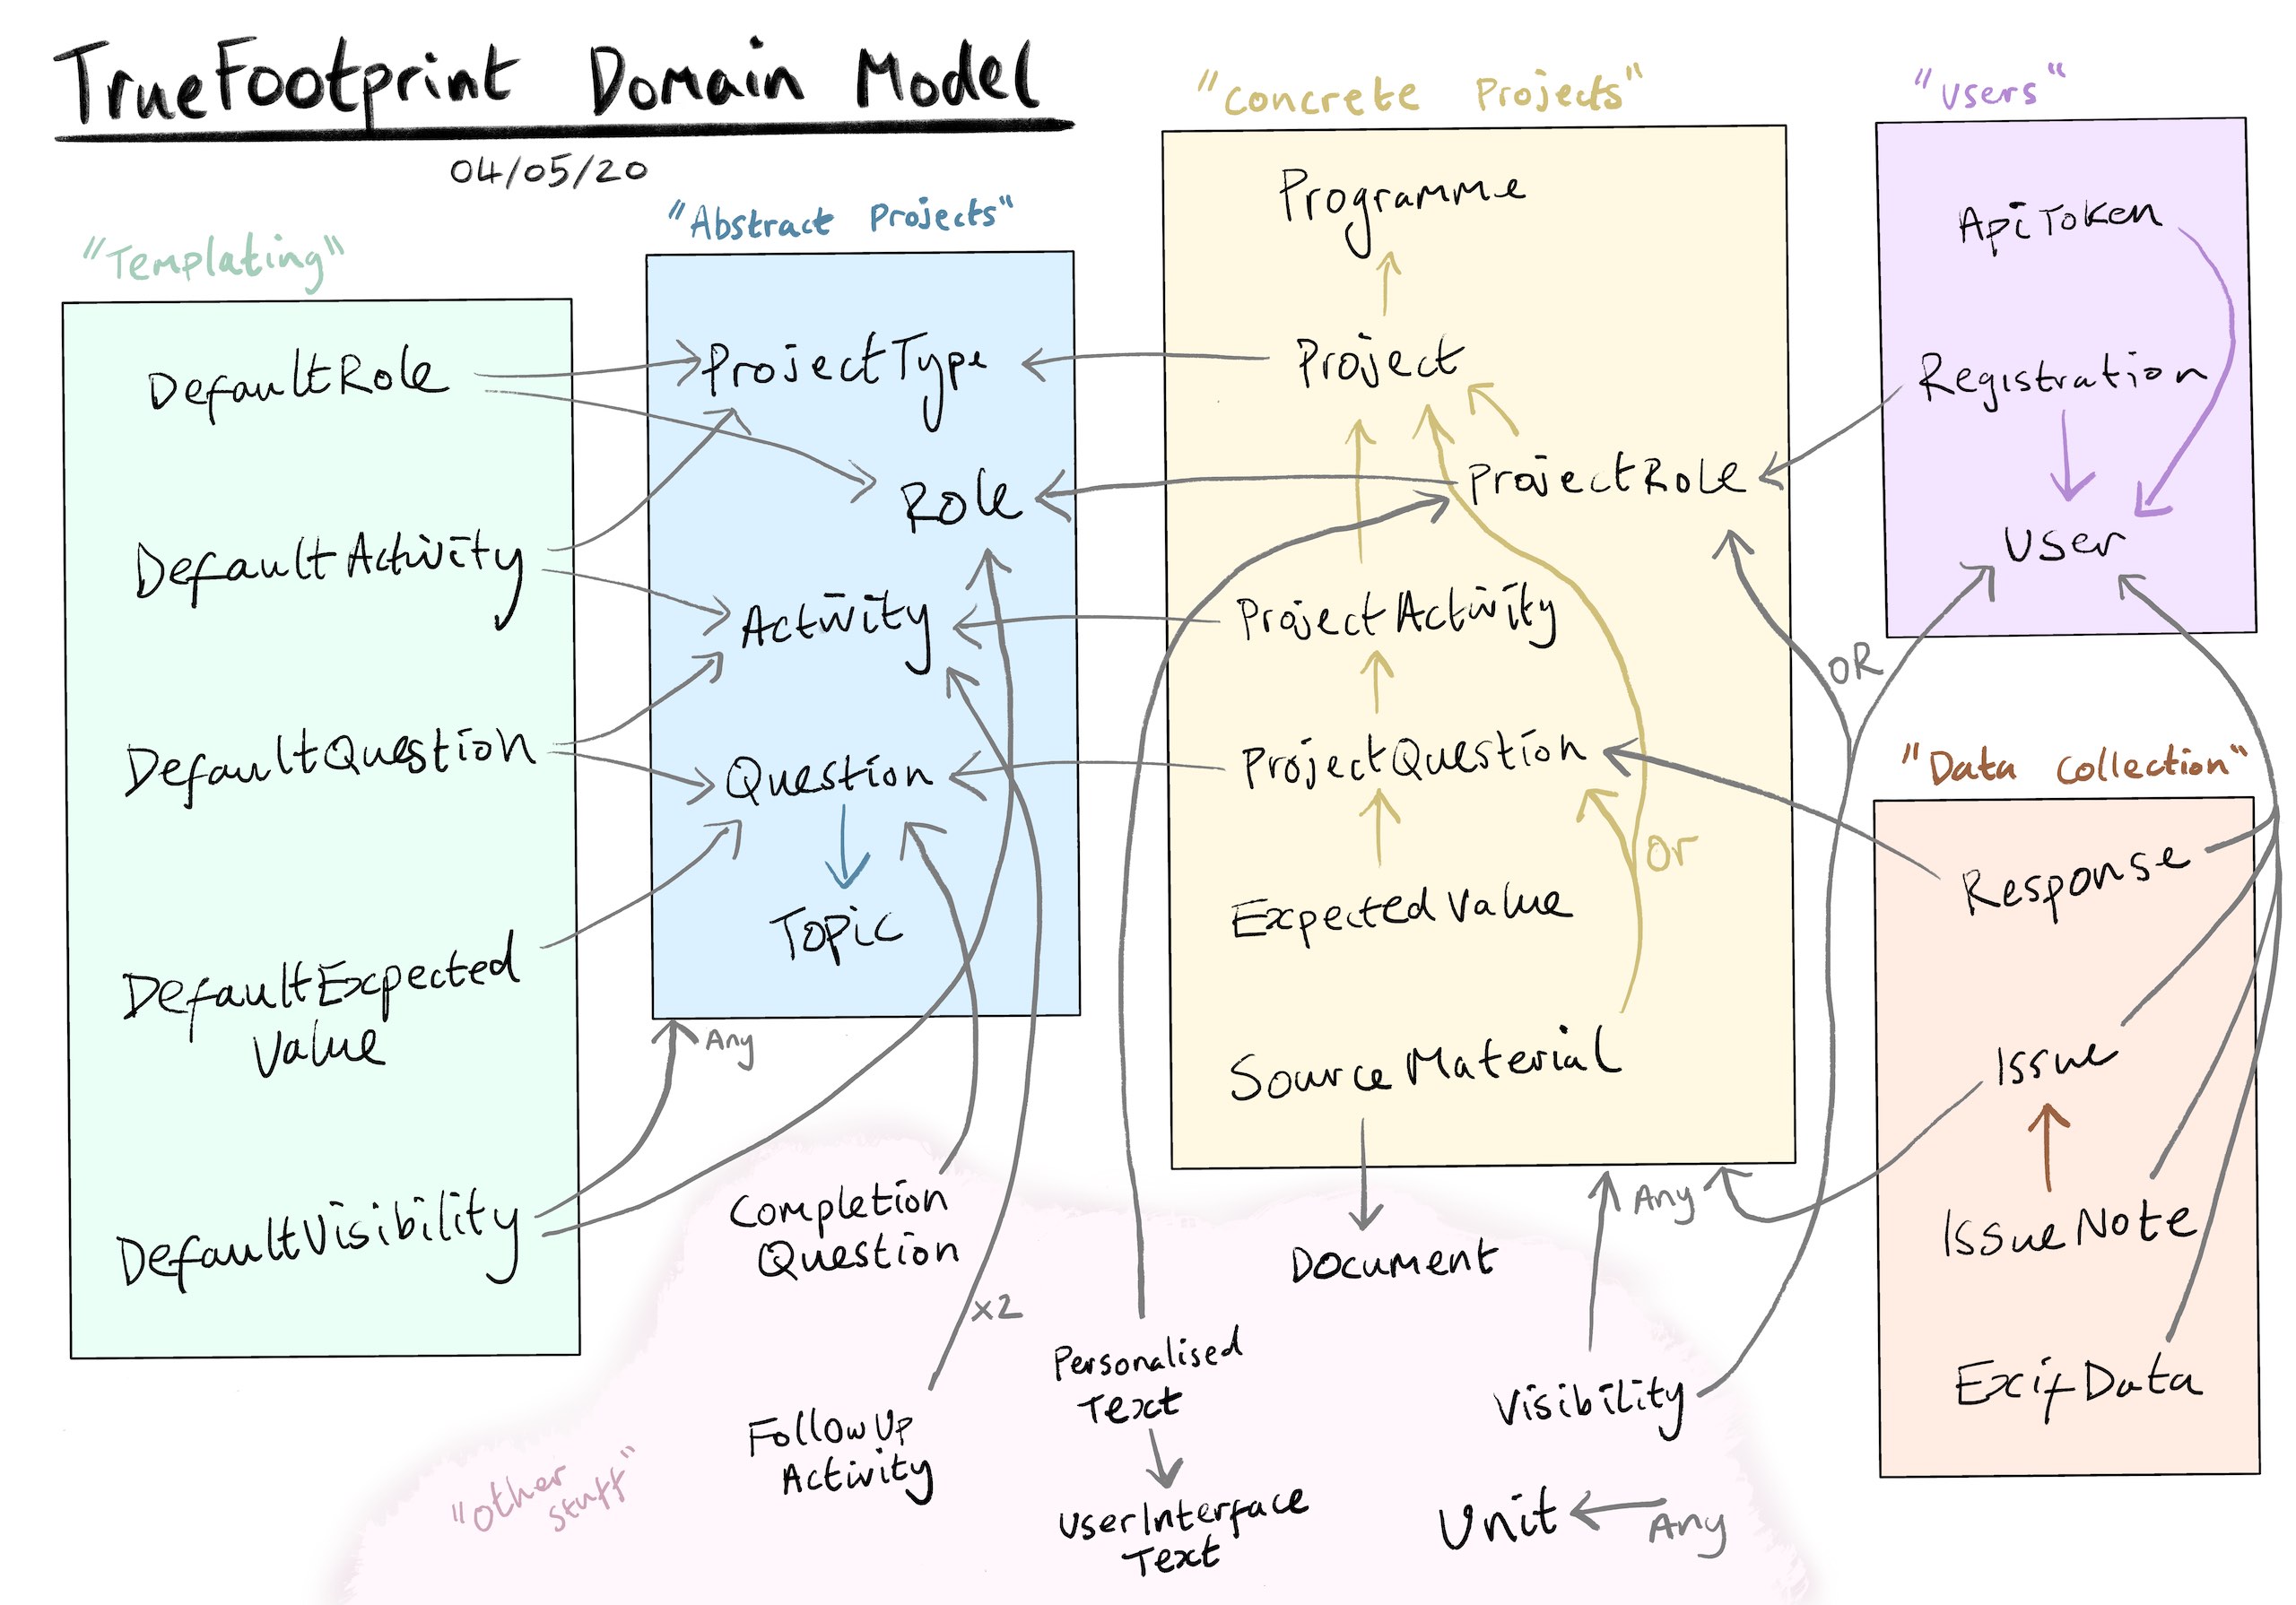 TrueFootprint Domain Model
04/05/20
"Templating"
DefaultRole
DefaultActivity
DefaultQuestion
DefaultExpected
Value
DefaultVisibility
"Abstract Projects"
ProjectType
Role
Activity
Question
Topic
Any
"Concrete Projects"
Programme
Project
ProjectRole
ProjectActivity
ProjectQuestion
or
ExpectedValue
SourceMaterial
Any
"Users"
ApiToken
Registration
User
OR
"Data Collection"
Response
Issue
IssueNote
ExifData
"other
stuff"
Completion
Question
x2
FollowUp
Activity
Personalised
Text
UserInterface
Text
Document
Visibility
Unit
Any